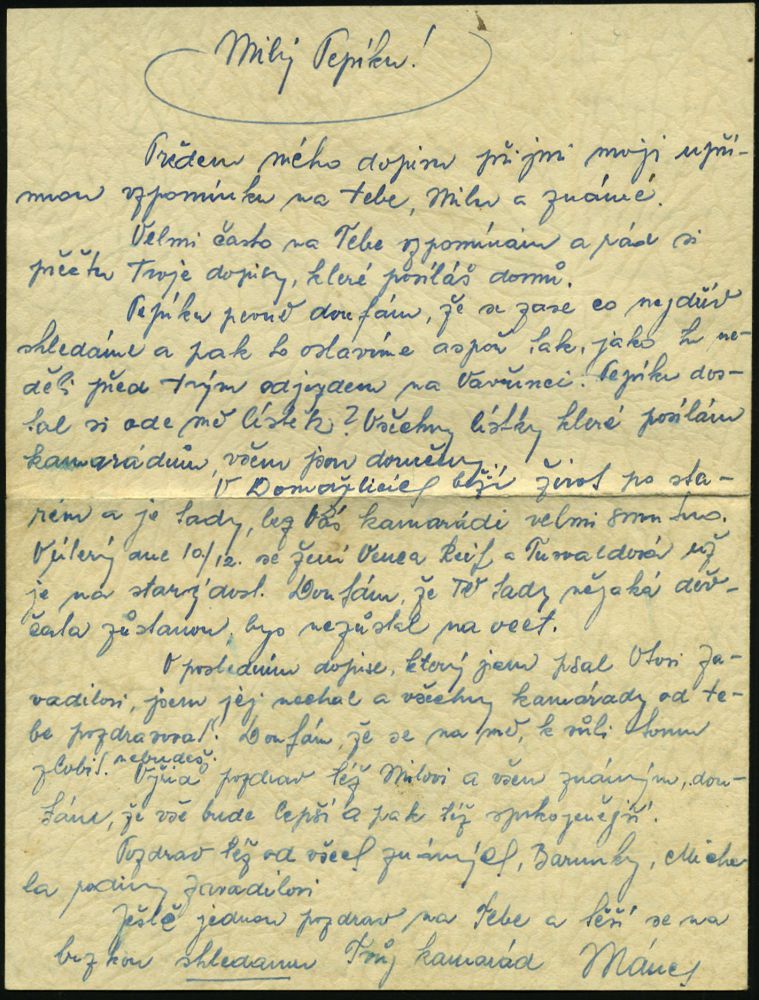 Milý Pepíku!
Předem mého dopisu přijmi moji upří-
mnou vzpomínku na tebe, Milu a známé.
Velmi často na Tebe vzpomínám a rád si
přečtu Tvoje dopisy, které posíláš domů.
Pepíku pevně doufám, že se zase co nejdřív
shledáme a pak to oslavíme aspoň tak, jako tu ne-
děli před tvým odjezdem na Vavřinci. Pepíku dos-
tal si ode mě lístek? Všechny lístky které posílám
kamarádům, všem jsou doručeny.
V Domažlicích běží život po sta-
rém a je tady, bez Vás kamarádi velmi smutno.
V úterý dne 10/12. se žení Venca Reif a už
je na starý dost. Doufám, že Tě tady nějaká děv-
čata zůstanou, bys nezůstal na ocet.
V posledním dopise, který jsem psal Otovi Za-
vadilovi, jsem jej nechal a všechny kamarády od te-
be pozdravovat. Doufám, že se na mě, k vůli tomu
zlobit nebudeš. Vyřiď pozdrav též Milovi a všem známým, dou-
fáme, že vše bude lepší a pak též spokojenější.
Pozdrav též od všech známých, Barunky,
la rodiny Zavadilovi
Ještě jednou pozdrav na Tebe a těší se na
brzkou shledanou Tvůj kamarád